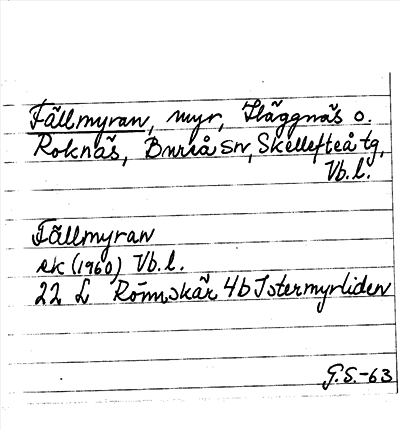 Fällmyran, myr, Häggnäs o.
Roknäs, Bureå sn, Skellefteå tg,
Vb.l.
Fällmyran
ek (1960) Vb.l.
22 L Rönnskär 4b Istermyrliden
G.S.-63